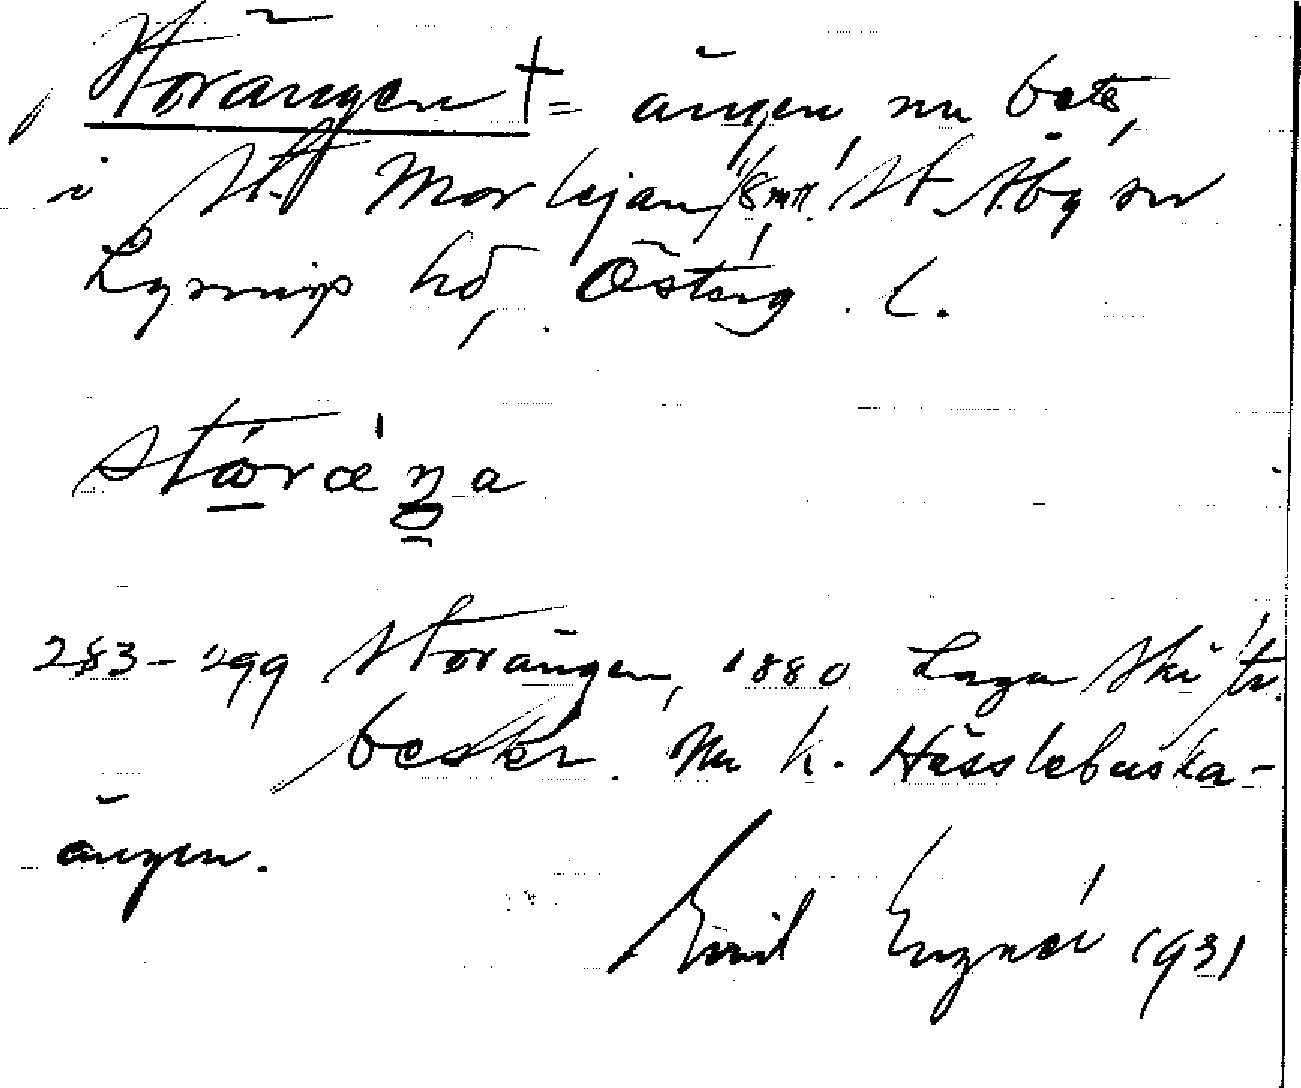 Storängen † = ängen, nu bete,
i St. Morlejan 1/8 mtl. St. Åby sn
Lysings hd, Österg. l.
storæŋa
283-299 Storängen, 1880 Laga Skiftr.
beskr. Nu k. Hässlebuska-
ängen.
Emil Engnér 1931